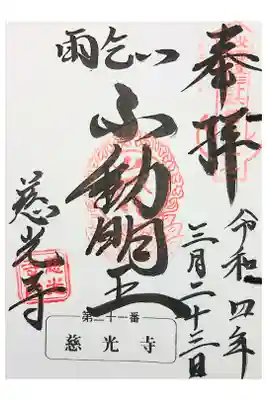 奉拝
令和四年
三月二十三日
雨乞い
不動明王
慈光寺
第二十一番
慈光寺